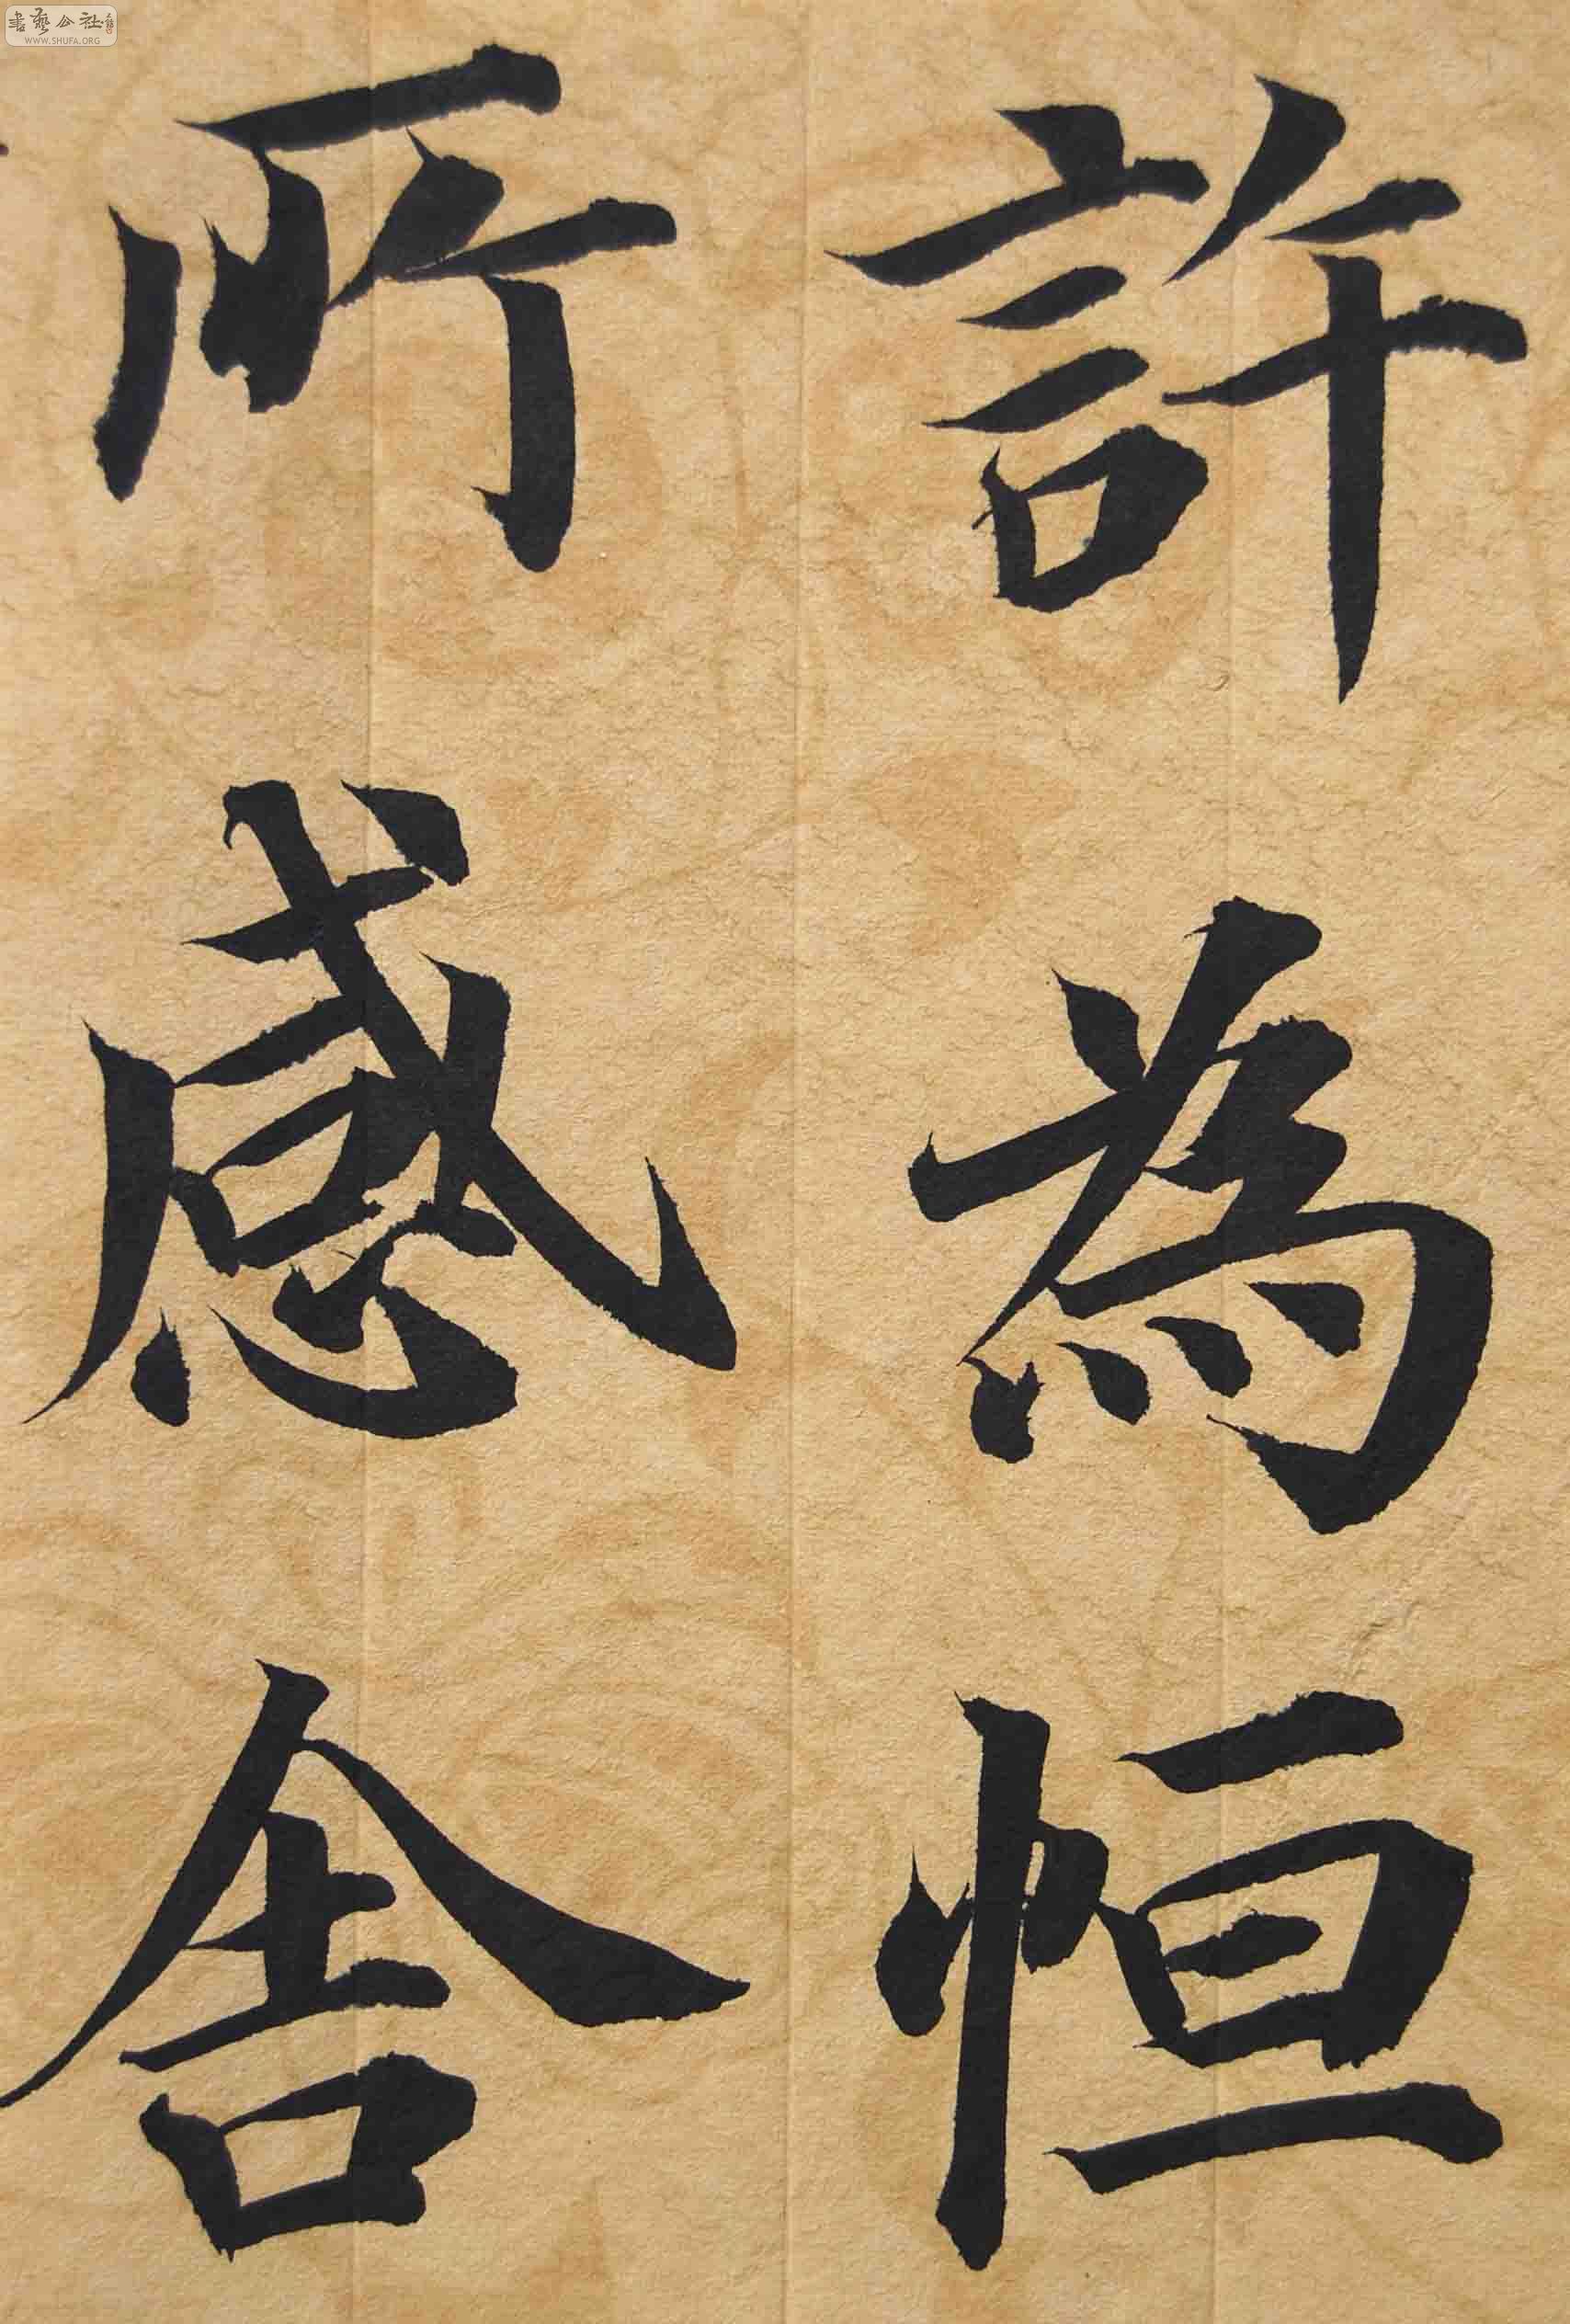 許為恒
所感舍
書藝公社
WWW.SHUFA.ORG